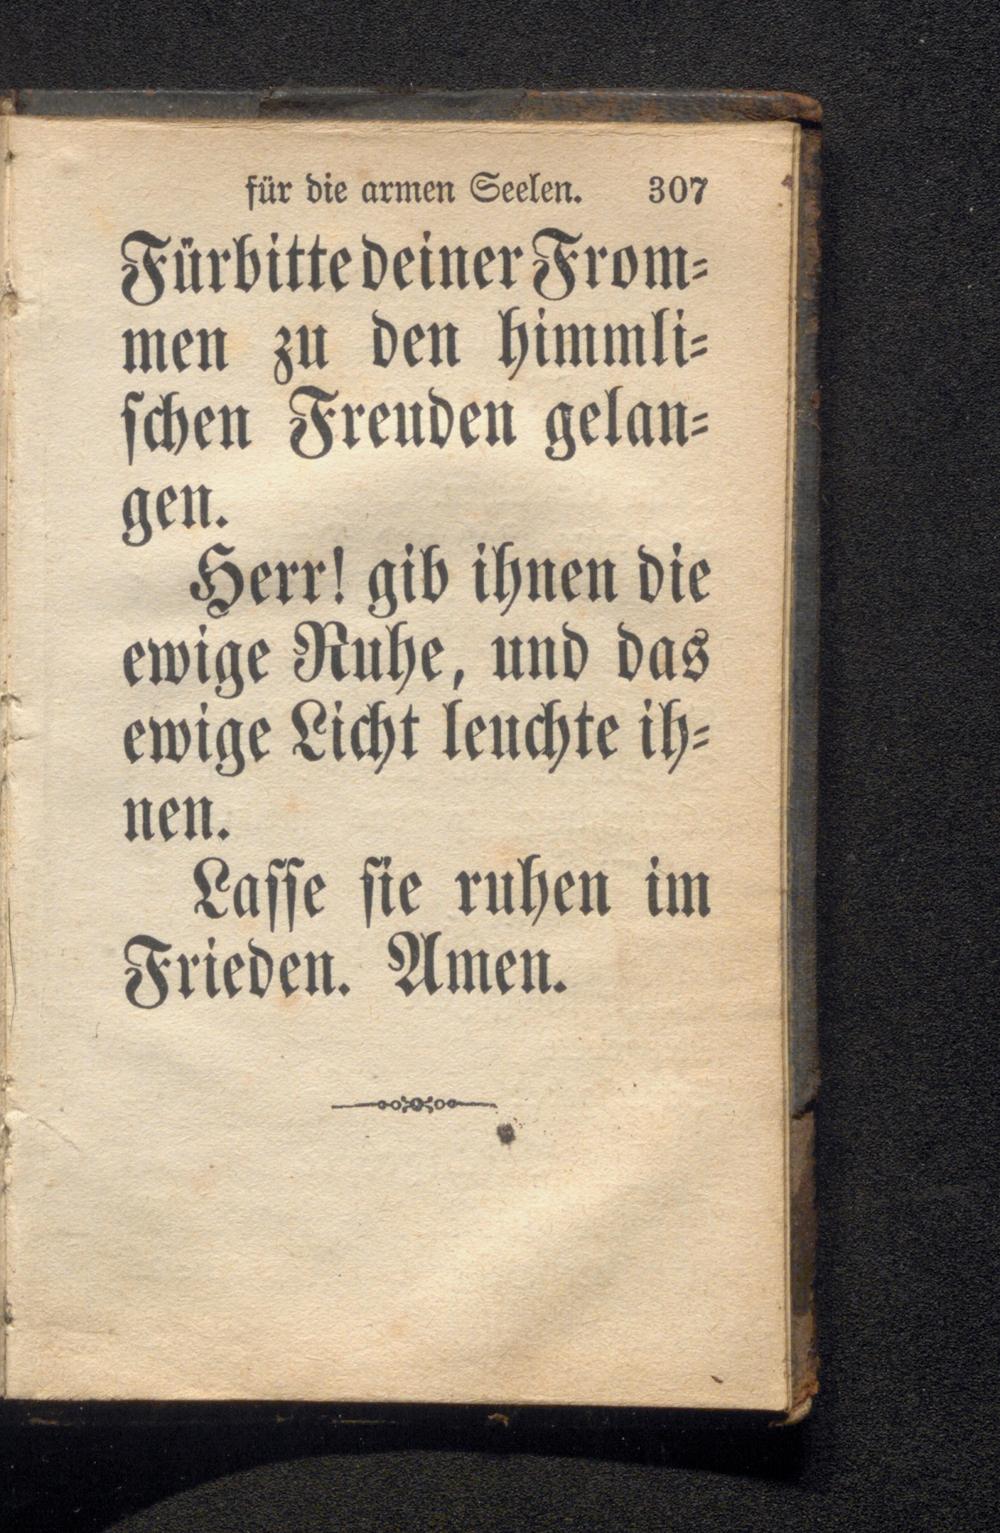 für die armen Seelen. 307
Fürbitte deiner From-
men zu den himmli-
schen Freuden gelan-
gen.
Herr! gib ihnen die
ewige Ruhe, und das
ewige Licht leuchte ih-
nen.
Lasse sie ruhen im
Frieden. Amen.